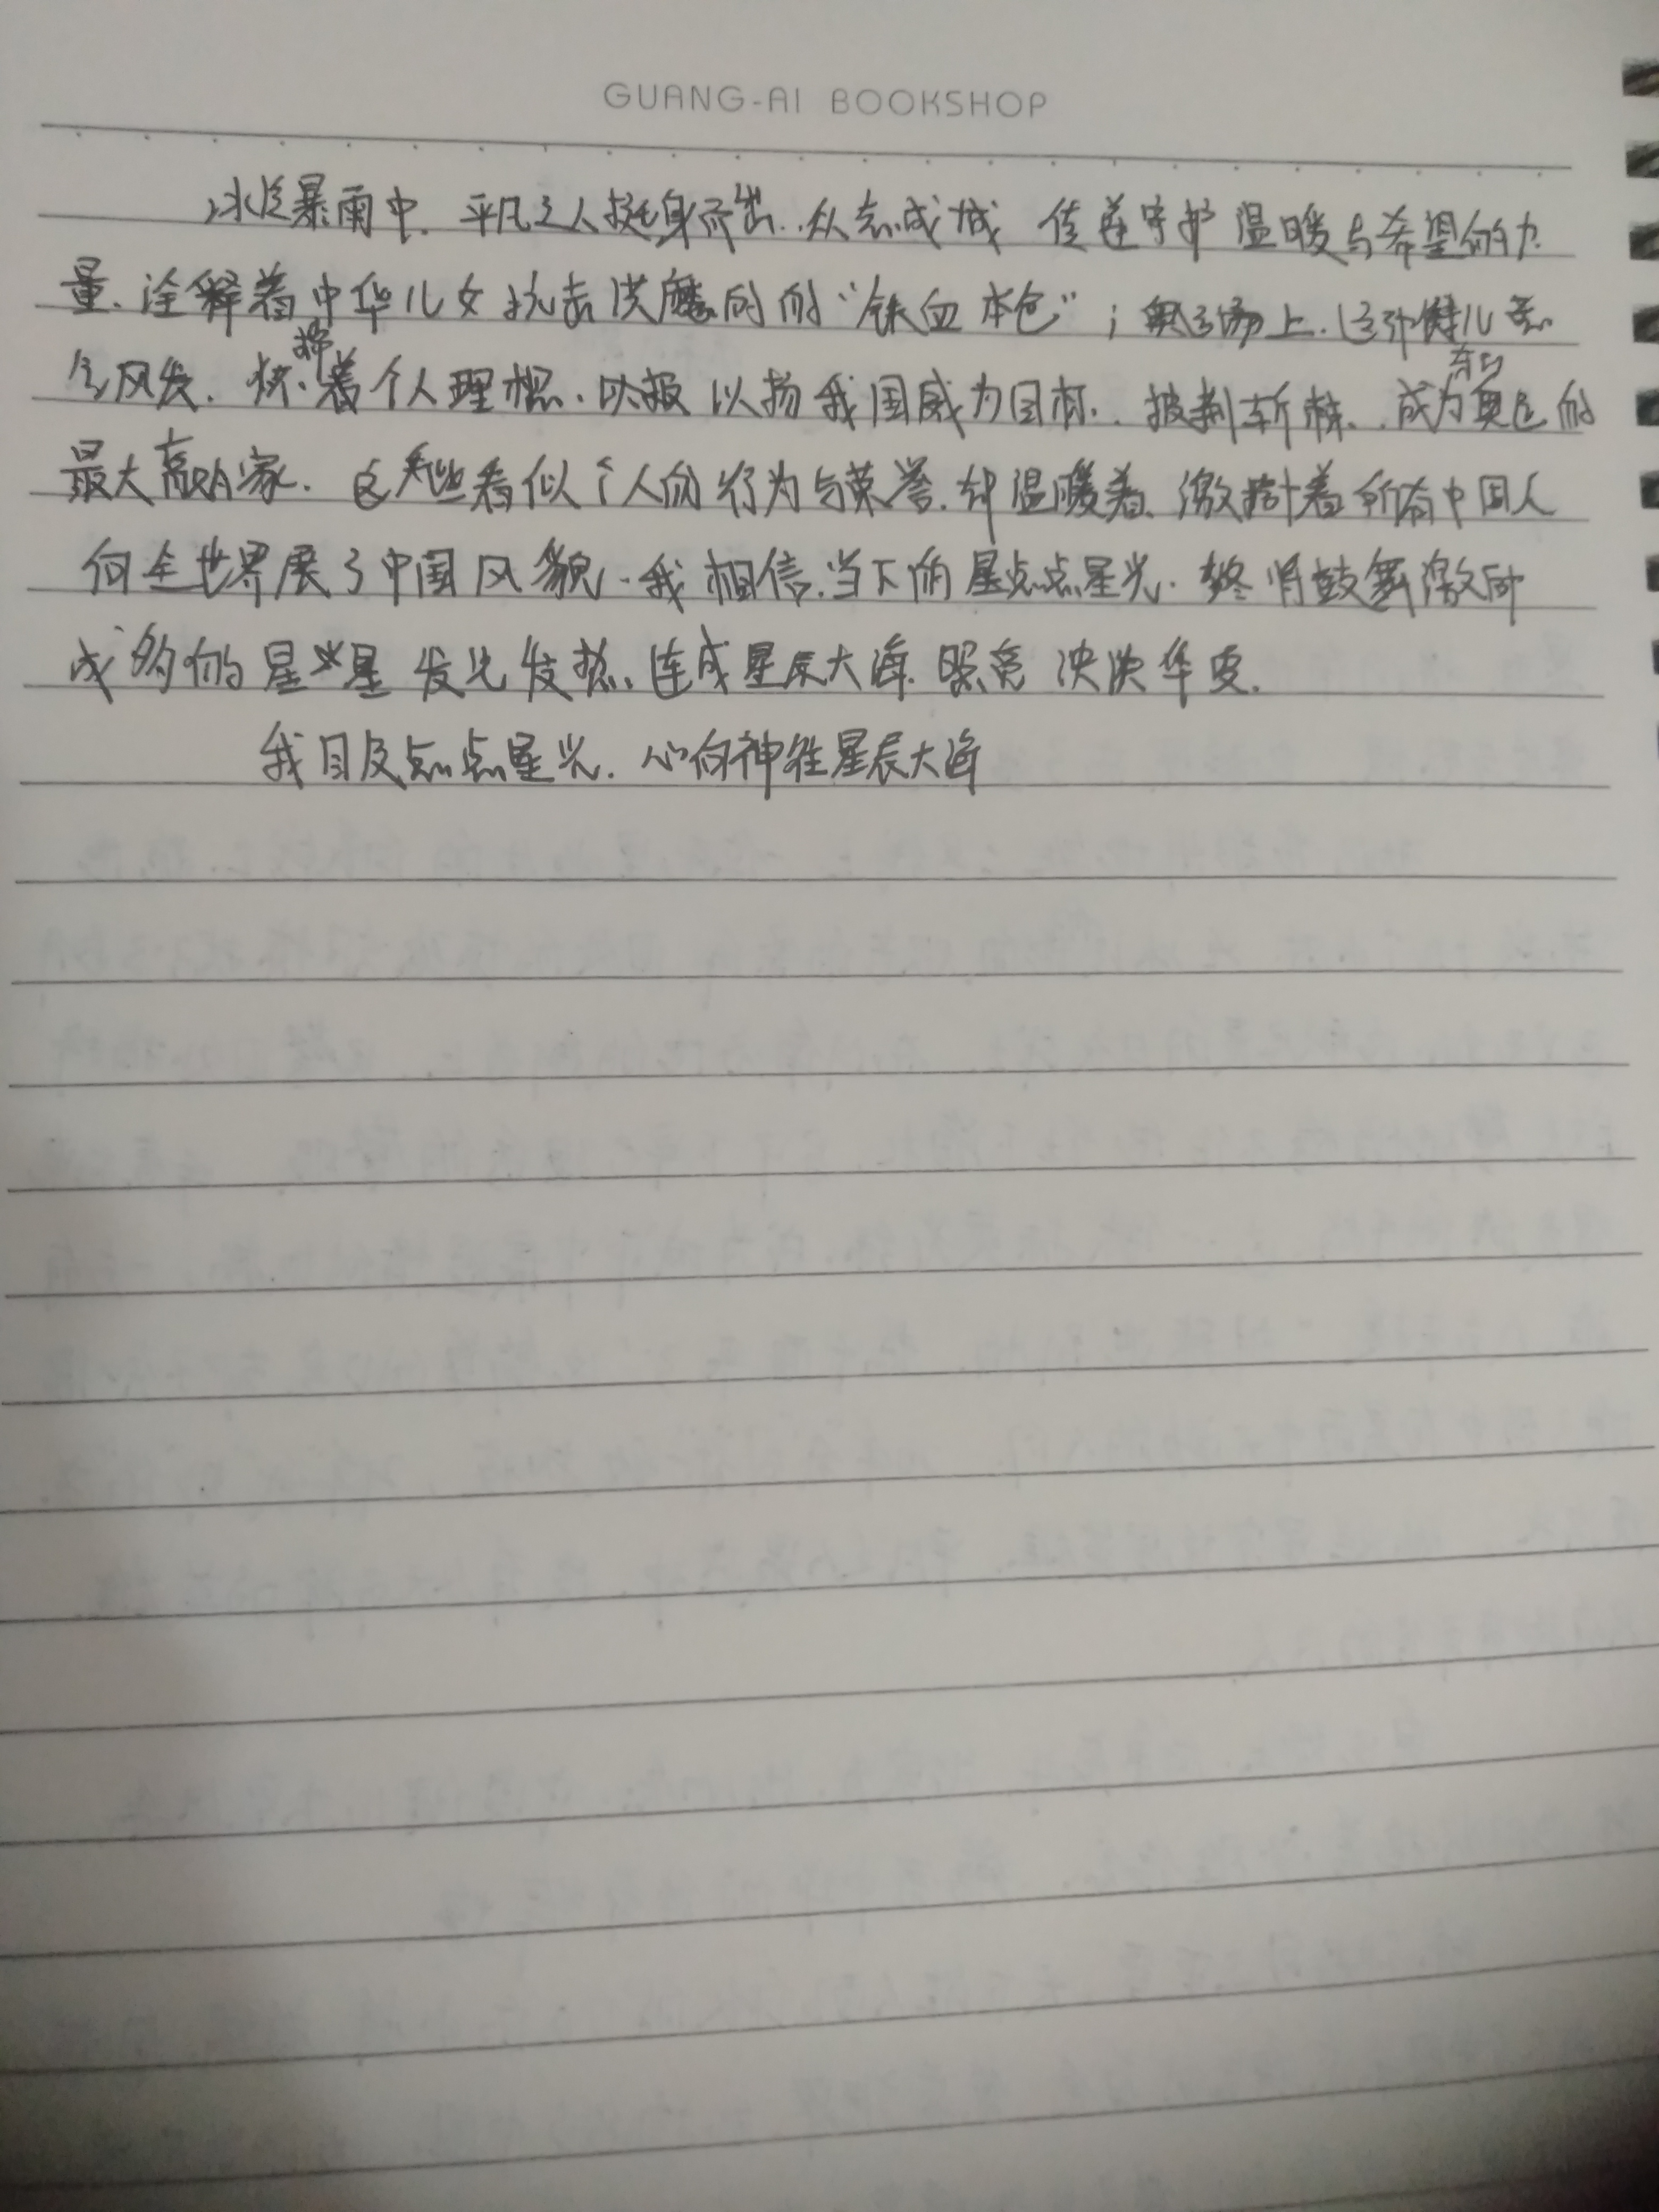 GUANG-AI BOOKSHOP
冰雹暴雨中，平凡之人挺身而出，众志成城 传递守护温暖与希望的力
量，诠释着中华儿女抗击洪魔时的“铁血本色”；奥运场上，运动健儿意
气风发，怀揣着个人理想，以扬我国威为目标，披荆斩棘，成为东京奥运的
最大赢家。这些看似个人的行为与荣誉，却温暖着、激励着所有中国人
向全世界展了中国风貌。我相信，当下的点点星光，终将鼓舞激励
成多的星星发光发热，连成星辰大海，照亮泱泱华夏。
我目及点点星光，心向神往星辰大海